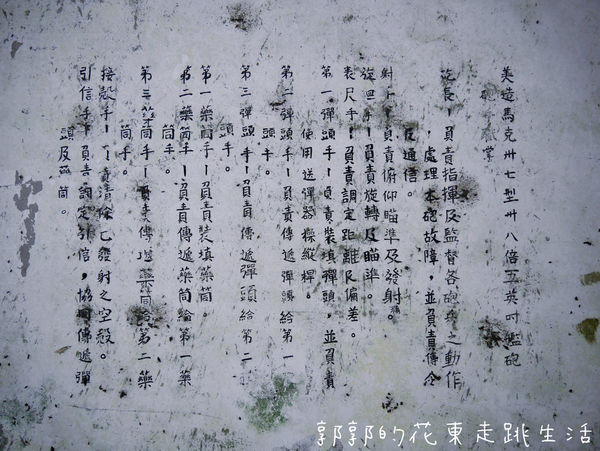 美造馬克卅七型卅八倍五英吋艦砲
砲 職掌
砲長－負責指揮及監督各砲 之動作
，處理本砲故障，並負責傳令
及通信。
射手－負責俯仰瞄準及發射。
旋迴手－負責旋轉及瞄準。
表尺手－負責調定距離及偏差。
第一彈頭手－負責裝填彈頭，並負責
使用送彈器操縱桿。
第二彈頭手－負責傳遞彈頭給第一
頭手。
第三彈頭手－負責傳遞彈頭給第二
頭手。
第一藥筒手－負責裝填藥筒。
第二藥筒手－負責傳遞藥筒給第一藥
筒手。
第三藥筒手－負責傳遞藥筒給第二藥
筒手。
接殼手－負責清除已發射之空殼。
引信手－負責調定引信，協同傳遞彈
頭及藥筒。
郭郭的花東走跳生活